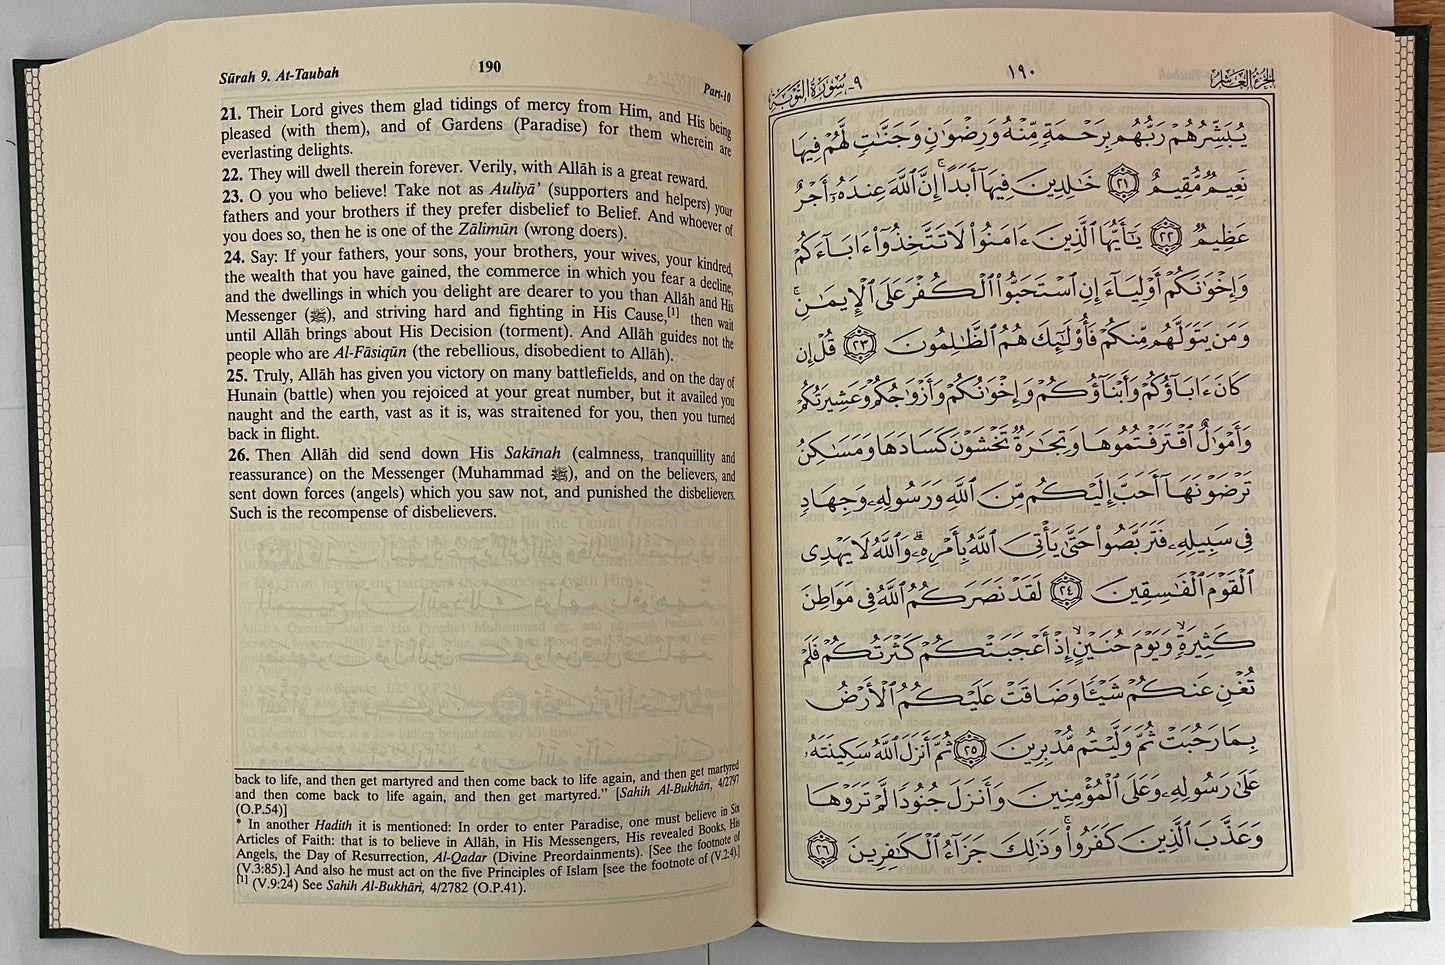 Sūrah 9. At-Taubah
190
Part-10
21. Their Lord gives them glad tidings of mercy from Him, and His being
pleased (with them), and of Gardens (Paradise) for them wherein are
everlasting delights.
22. They will dwell therein forever. Verily, with Allāh is a great reward.
23. O you who believe! Take not as Auliyā' (supporters and helpers) your
fathers and your brothers if they prefer disbelief to Belief. And whoever of
you does so, then he is one of the Zālimūn (wrong doers).
24. Say: If your fathers, your sons, your brothers, your wives, your kindred,
the wealth that you have gained, the commerce in which you fear a decline,
and the dwellings in which you delight are dearer to you than Allāh and His
Messenger (ﷺ), and striving hard and fighting in His Cause,[1] then wait
until Allāh brings about His Decision (torment). And Allāh guides not the
people who are Al-Fāsiqūn (the rebellious, disobedient to Allāh).
25. Truly, Allāh has given you victory on many battlefields, and on the day of
Hunain (battle) when you rejoiced at your great number, but it availed you
naught and the earth, vast as it is, was straitened for you, then you turned
back in flight.
26. Then Allāh did send down His Sakīnah (calmness, tranquillity and
reassurance) on the Messenger (Muhammad ﷺ), and on the believers, and
sent down forces (angels) which you saw not, and punished the disbelievers.
Such is the recompense of disbelievers.
back to life, and then get martyred and then come back to life again, and then get martyred
and then come back to life again, and then get martyred." [Sahih Al-Bukhāri, 4/2797
(O.P.54)]
* In another Hadith it is mentioned: In order to enter Paradise, one must believe in Six
Articles of Faith: that is to believe in Allāh, in His Messengers, His revealed Books, His
Angels, the Day of Resurrection, Al-Qadar (Divine Preordainments). [See the footnote of
(V.3:85).] And also he must act on the five Principles of Islam [see the footnote of (V.2:4).]
[1] (V.9:24) See Sahih Al-Bukhāri, 4/2782 (O.P.41).
الجزء العاشر
١٩٠
٩- سورة التوبة
يُبَشِّرُهُمْ رَبُّهُم بِرَحْمَةٍ مِّنْهُ وَرِضْوَٰنٍ وَجَنَّٰتٍ لَّهُمْ فِيهَا
نَعِيمٌ مُّقِيمٌ ٢١ خَٰلِدِينَ فِيهَآ أَبَدًا ۚ إِنَّ ٱللَّهَ عِندَهُۥٓ أَجْرٌ
عَظِيمٌ ٢٢ يَٰٓأَيُّهَا ٱلَّذِينَ ءَامَنُوا۟ لَا تَتَّخِذُوٓا۟ ءَابَآءَكُمْ
وَإِخْوَٰنَكُمْ أَوْلِيَآءَ إِنِ ٱسْتَحَبُّوا۟ ٱلْكُفْرَ عَلَى ٱلْإِيمَٰنِ ۚ
وَمَن يَتَوَلَّهُم مِّنكُمْ فَأُو۟لَٰٓئِكَ هُمُ ٱلظَّٰلِمُونَ ٢٣ قُلْ إِن
كَانَ ءَابَآؤُكُمْ وَأَبْنَآؤُكُمْ وَإِخْوَٰنُكُمْ وَأَزْوَٰجُكُمْ وَعَشِيرَتُكُمْ
وَأَمْوَٰلٌ ٱقْتَرَفْتُمُوهَا وَتِجَٰرَةٌ تَخْشَوْنَ كَسَادَهَا وَمَسَٰكِنُ
تَرْضَوْنَهَآ أَحَبَّ إِلَيْكُم مِّنَ ٱللَّهِ وَرَسُولِهِۦ وَجِهَادٍ
فِى سَبِيلِهِۦ فَتَرَبَّصُوا۟ حَتَّىٰ يَأْتِىَ ٱللَّهُ بِأَمْرِهِۦ ۗ وَٱللَّهُ لَا يَهْدِى
ٱلْقَوْمَ ٱلْفَٰسِقِينَ ٢٤ لَقَدْ نَصَرَكُمُ ٱللَّهُ فِى مَوَاطِنَ
كَثِيرَةٍ ۙ وَيَوْمَ حُنَيْنٍ ۙ إِذْ أَعْجَبَتْكُمْ كَثْرَتُكُمْ فَلَمْ
تُغْنِ عَنكُمْ شَيْـًٔا وَضَاقَتْ عَلَيْكُمُ ٱلْأَرْضُ
بِمَا رَحُبَتْ ثُمَّ وَلَّيْتُم مُّدْبِرِينَ ٢٥ ثُمَّ أَنزَلَ ٱللَّهُ سَكِينَتَهُۥ
عَلَىٰ رَسُولِهِۦ وَعَلَى ٱلْمُؤْمِنِينَ وَأَنزَلَ جُنُودًا لَّمْ تَرَوْهَا
وَعَذَّبَ ٱلَّذِينَ كَفَرُوا۟ ۚ وَذَٰلِكَ جَزَآءُ ٱلْكَٰفِرِينَ ٢٦